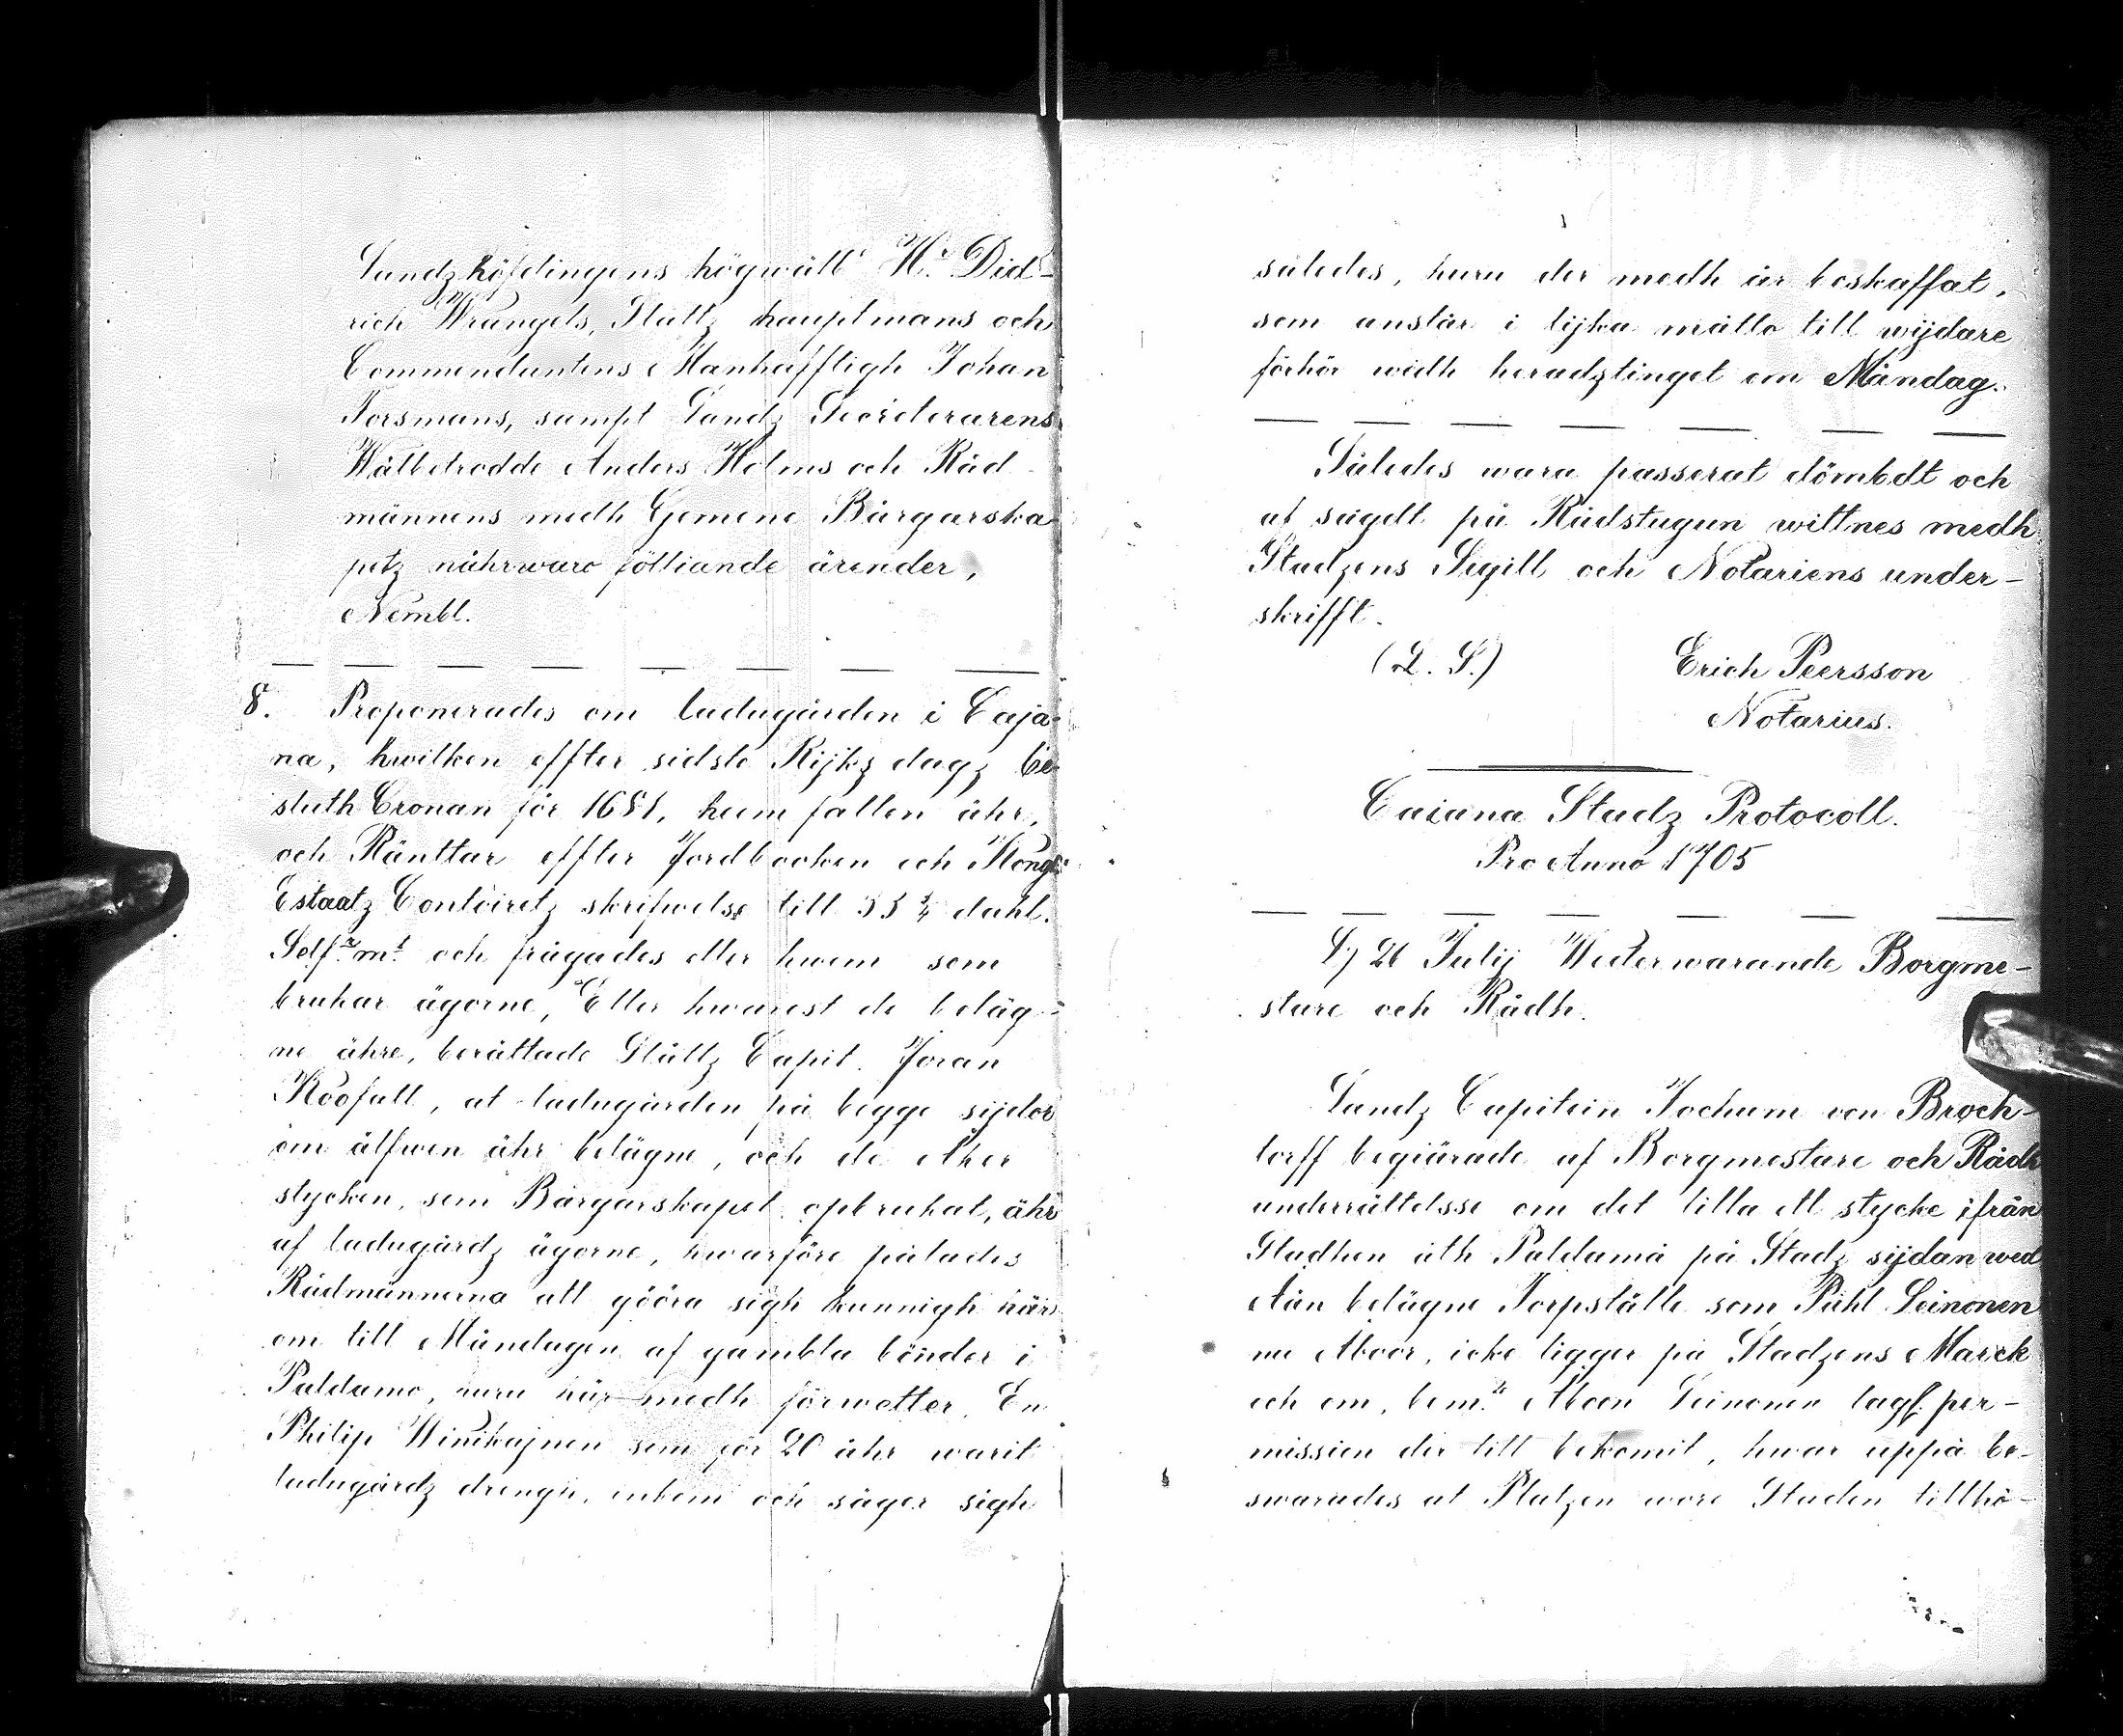 Landzhöfdingens högwälb. Hr. Did-
rich Wrangels, Slåttz hauptmans och
Commendantens Manhafftigh Johan
Forsmans, sampt Landz Secreterarens
Wälbetrodde Anders Holms och Råd
männens medh Gemene Bårgarska
petz nährwaro fölliande ärender,
Nembl.
8. Proponerades om ladugården i Caja-
na, hwilken effter sidste Rijkz dagz be-
sluth Cronan för 1681, heem fallen ähr,
och Ränttar effter Jordbooken och Kongl.
Estaatz Contoiretz skrifwelse till 33 ¼ dahl.
Solfr mt och frågades eller hwem som
brukar ägorne, Eller hwarest de beläg-
ne ähre, berättade Slåttz Capit. Joran
Roofall, at ladugården på begge sijdor
om älfwen ähr belägne, och de Åker
stycken, som Bårgarskapet opbrukat, ähr
af ladugårdz ägorne, hwarföre pålades
Rådmännerna att gööra sigh kunnigh här
om till Måndagen af gambla bönder i
Paldamo, huru här medh förwetter. En
Philip Winikajnen som för 20 åhr warit
ladugårdz drengh, inkom och säger sigh
således, huru der medh är beskaffat,
som anstår i lijka målto till wijdare
förhör widh heradztinget om Måndag.
Således wara passerat dömbdt och
af sagdt på Rådstugun wittnes medh
Stadzens Sigill och Notariens under-
skrifft.
(L. S.) Erich Peersson
Notarius.
Caiana Stadz Protocoll.
Pro Anno 1705
D; 26 Julij Wederwarande Borgme-
stare och Rådh.
Landz Capitein Jochum von Broch-
torff begiärade af Borgmestare och Rådh
underrättelsse om det lilla ett stycke ifrån
Stadhen åth Paldamå på Stadz sijdan wed
Åån belägne Torpställe som Påhl Leinonen
nu Aboor, icke ligger på Stadzens Marck
och om, bem.te Åboen Leinonen lagl. per-
mission der till bekomit, hwar uppå be-
swarades at Platzen wore Staden tillhö-